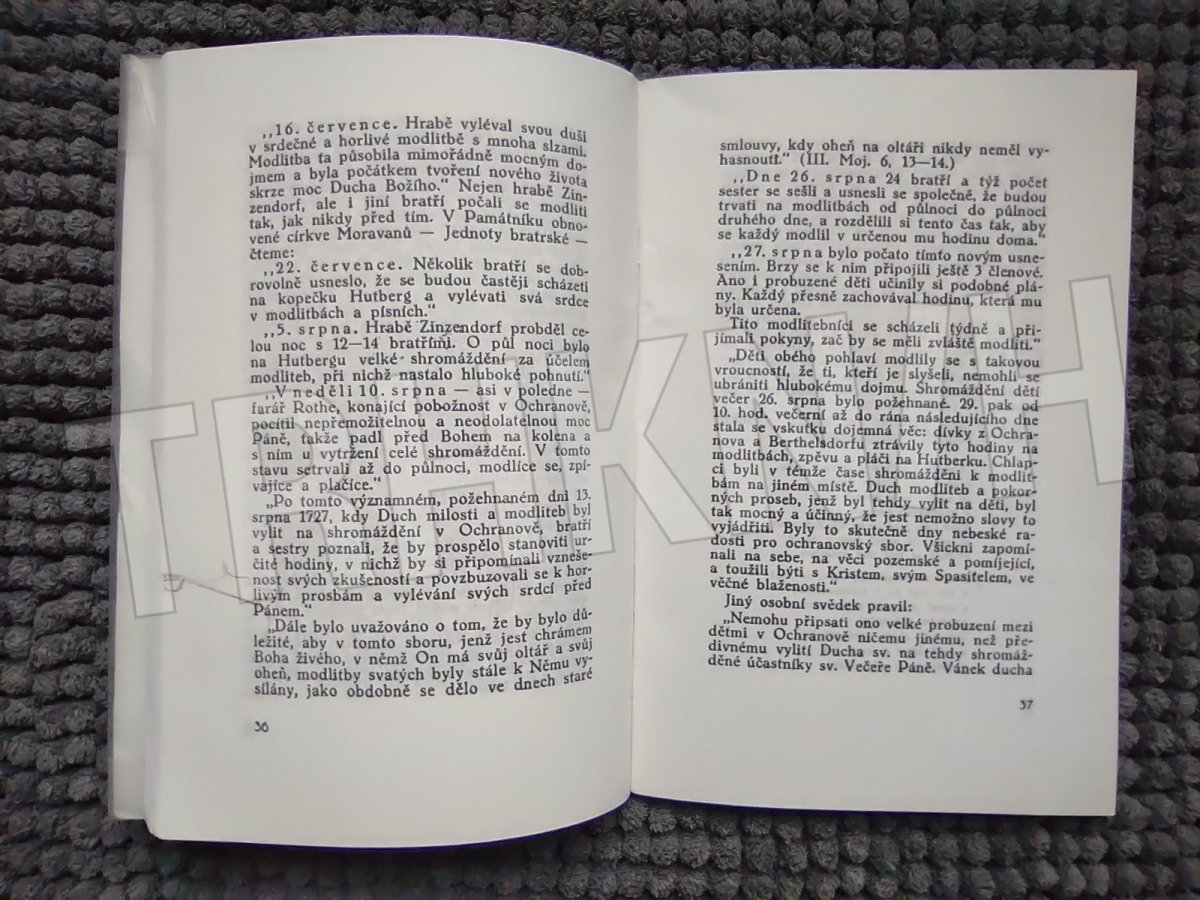 „16. července. Hrabě vyléval svou duši
v srdečné a horlivé modlitbě s mnoha slzami.
Modlitba ta působila mimořádně mocným do-
jmem a byla počátkem tvoření nového života
skrze moc Ducha Božího.“ Nejen hrabě Zin-
zendorf, ale i jiní bratří počali se modliti
tak, jak nikdy před tím. V Památníku obno-
vené církve Moravanů — Jednoty bratrské —
čteme:
„22. července. Několik bratří se dob-
rovolně usneslo, že se budou častěji scházeti
na kopečku Hutberg a vylévati svá srdce
v modlitbách a písních.“
„5. srpna. Hrabě Zinzendorf probděl ce-
lou noc s 12—14 bratřími. O půl noci bylo
na Hutbergu velké shromáždění za účelem
modliteb, při nichž nastalo hluboké pohnutí.“
„V neděli 10. srpna — asi v poledne —
farář Rothe, konající pobožnost v Ochranově,
pocítil nepřemožitelnou a neodolatelnou moc
Páně, takže padl před Bohem na kolena a
s ním u vytržení celé shromáždění. V tomto
stavu setrvali až do půlnoci, modlíce se, zpí-
vajíce a plačíce.“
„Po tomto významném, požehnaném dni 13.
srpna 1727, kdy Duch milosti a modliteb byl
vylit na shromáždění v Ochranově, bratří
a sestry poznali, že by prospělo stanoviti ur-
čité hodiny, v nichž by si připomínali vzneše-
nost svých zkušeností a povzbuzovali se k hor-
livým prosbám a vylévání svých srdcí před
Pánem.“
„Dále bylo uvažováno o tom, že by bylo dů-
ležité, aby v tomto sboru, jenž jest chrámem
Boha živého, v němž On má svůj oltář a svůj
oheň, modlitby svatých byly stále k Němu vy-
sílány, jako obdobně se dělo ve dnech staré
36
smlouvy, kdy oheň na oltáři nikdy neměl vy-
hasnouti.“ (III. Moj. 6, 13—14.)
„Dne 26. srpna 24 bratří a týž počet
sester se sešli a usnesli se společně, že budou
trvati na modlitbách od půlnoci do půlnoci
druhého dne, a rozdělili si tento čas tak, aby
se každý modlil v určenou mu hodinu doma.“
„27. srpna bylo počato tímto novým usne-
sením. Brzy se k nim připojili ještě 3 členové.
Ano i probuzené děti učinily si podobné plá-
ny. Každý přesně zachovával hodinu, která mu
byla určena.
Tito modlitebníci se scházeli týdně a při-
jímali pokyny, zač by se měli zvláště modliti.“
„Děti obého pohlaví modlily se s takovou
vroucností, že ti, kteří je slyšeli, nemohli se
ubrániti hlubokému dojmu. Shromáždění dětí
večer 26. srpna bylo požehnané. 29. pak od
10. hod. večerní až do rána následujícího dne
stala se vskutku dojemná věc: dívky z Ochra-
nova a Berthelsdorfu ztrávily tyto hodiny na
modlitbách, zpěvu a pláči na Hutberku. Chlap-
ci byli v témže čase shromážděni k modlit-
bám na jiném místě. Duch modliteb a pokor-
ných proseb, jenž byl tehdy vylit na děti, byl
tak mocný a účinný, že jest nemožno slovy to
vyjádřiti. Byly to skutečně dny nebeské ra-
dosti pro ochranovský sbor. Všickni zapomí-
nali na sebe, na věci pozemské a pomíjející,
a toužili býti s Kristem, svým Spasitelem, ve
věčné blaženosti.“
Jiný osobní svědek pravil:
„Nemohu připsati ono velké probuzení mezi
dětmi v Ochranově ničemu jinému, než pře-
divnému vylití Ducha sv. na tehdy shromáž-
děné účastníky sv. Večeře Páně. Vánek ducha
37